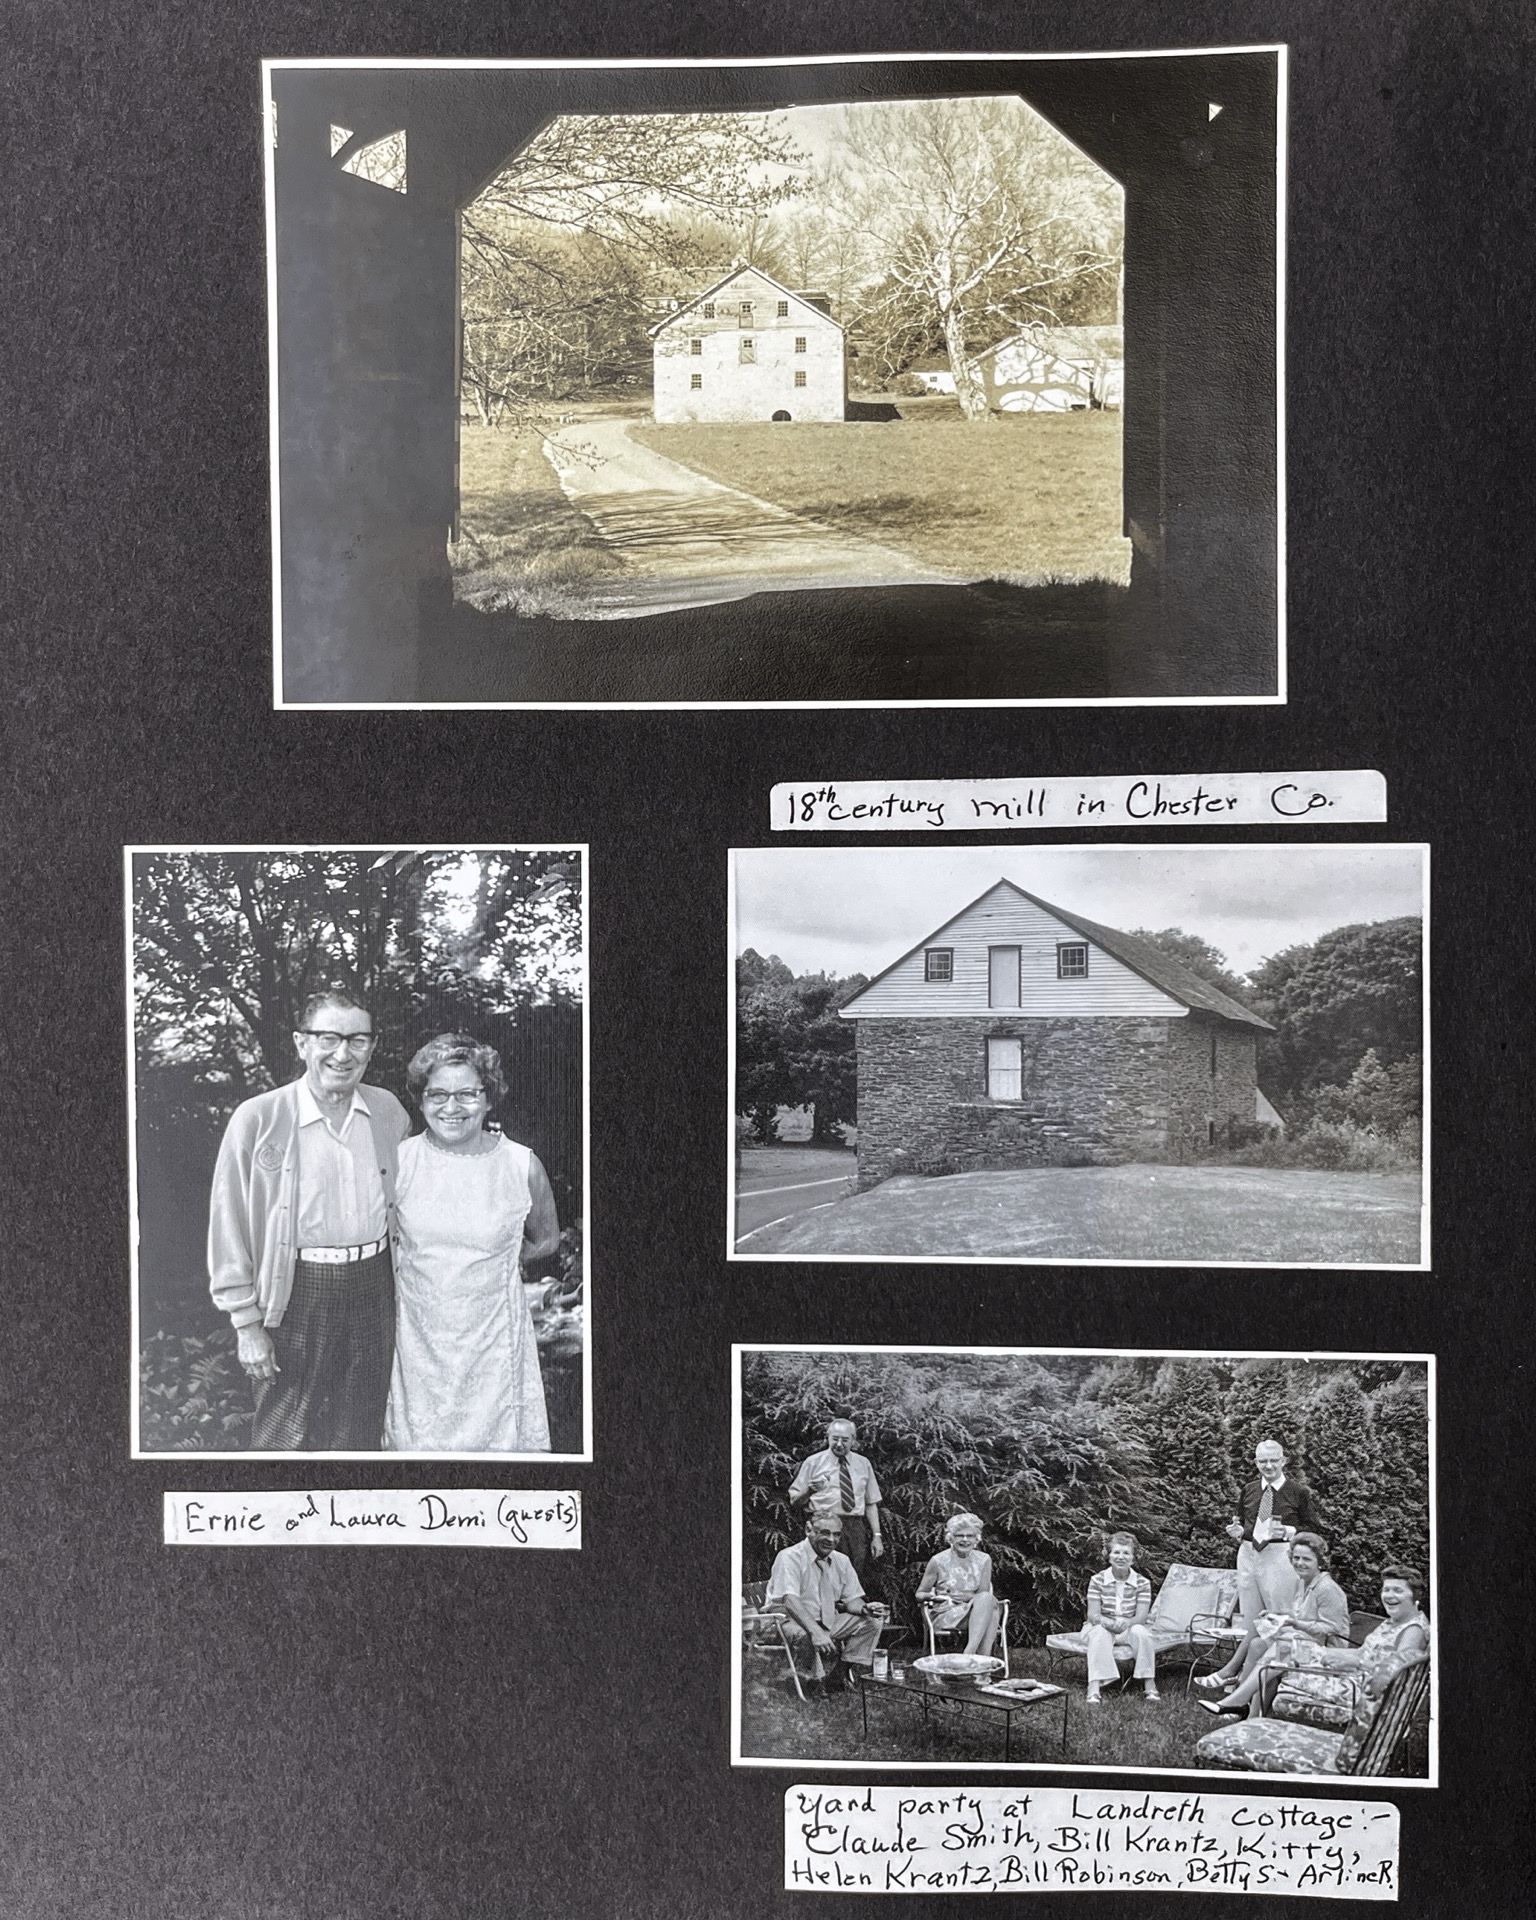 18th century mill in Chester Co.
Ernie and Laura Demi (guests)
Yard party at Landreth cottage:-
Claude Smith, Bill Krantz, Kitty,
Helen Krantz, Bill Robinson, Betty S. + Arline R.